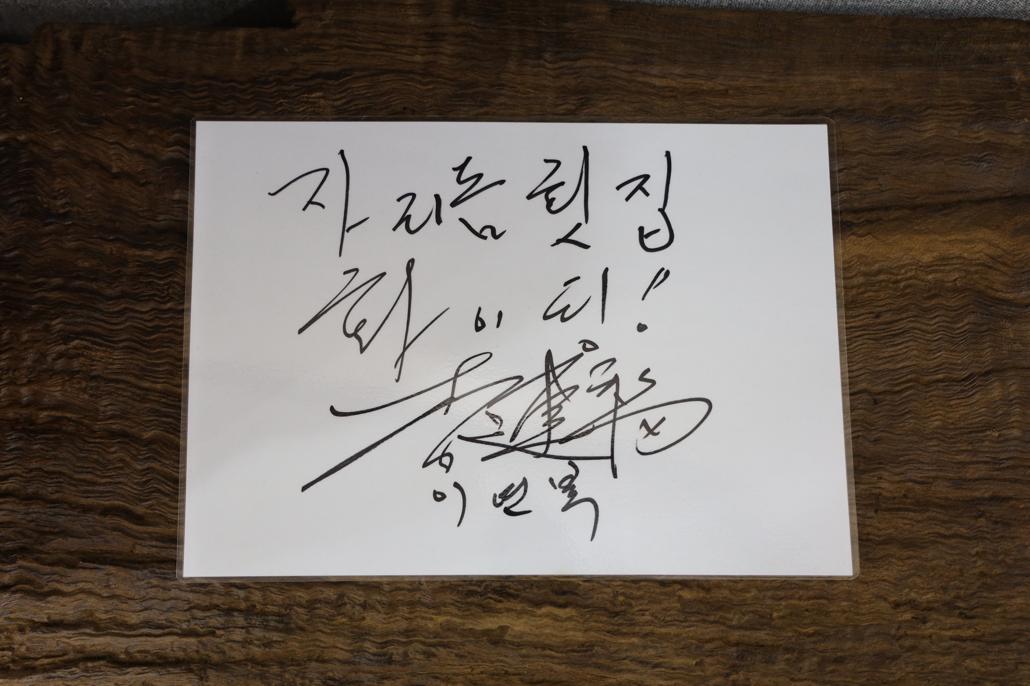 자리돔횟집
화이팅!
이면혁